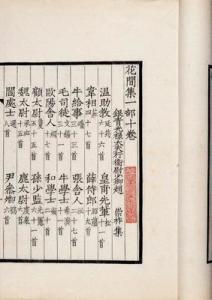 花間集一部十卷
銀青光祿大夫行衛尉少卿趙 崇祚集
溫助教庭筠 皇甫先輩松
韋相莊四十七首 薛侍郎昭蘊十九首
牛給事嶠 張舍人泌二十七首
毛司徒文錫三十一首 牛學士希濟十一首
歐陽舍人炯十七首 和學士凝二十首
顧太尉敻五十五首 孫少監光憲
魏太尉承班 鹿太尉虔扆六首
閻處士選八首 尹參卿鶚六首